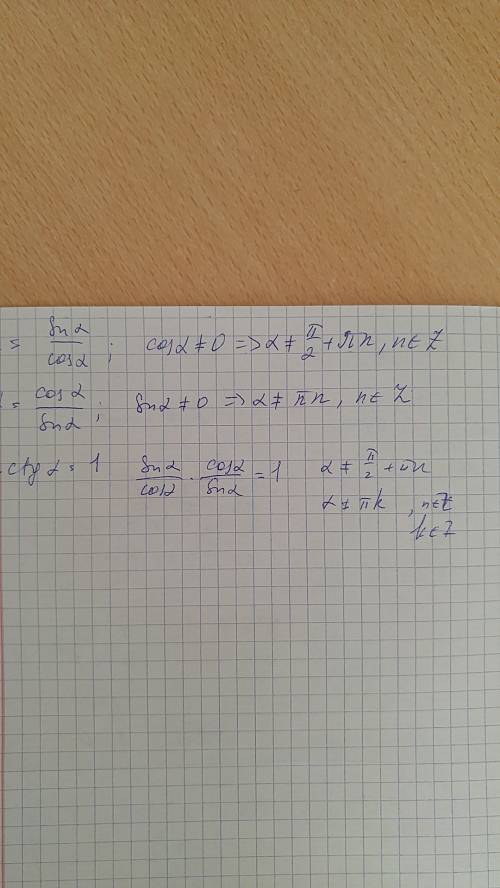 = sin α / cos α ; cos α ≠ 0 => α ≠ π/2 + πn, n ∈ Z
= cos α / sin α ; sin α ≠ 0 => α ≠ πn, n ∈ Z
ctg α = 1 sin α / cos α · cos α / sin α = 1 α ≠ π/2 + πn
α ≠ πk , n ∈ Z
k ∈ Z